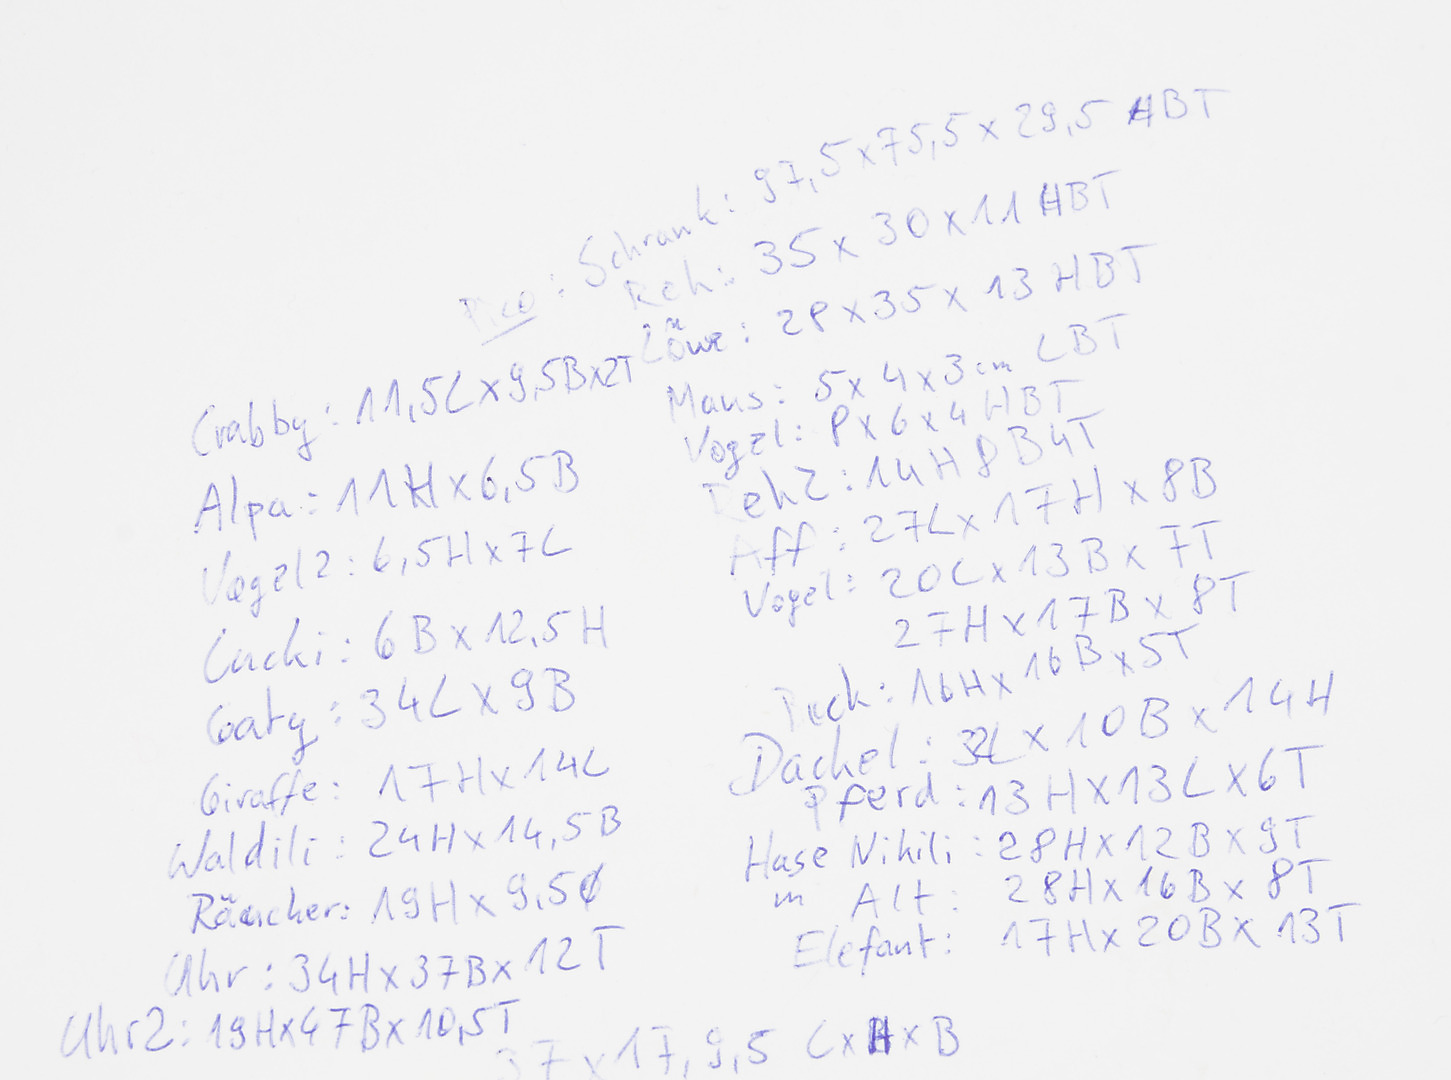 Pico: Schrank: 97,5x75,5x29,5 HBT
Reh: 35x30x11 HBT
Löwe: 28x35x13 HBT
Maus: 5x4x3cm LBT
Vogel: 8x6x4 HBT
Reh2: 14H 8B4T
Aff: 27Lx17Hx8B
Vogel: 20Lx13Bx7T
27Hx17Bx8T
16Hx16Bx5T
Dachel: 32Lx10Bx14H
Pferd: 13Hx13Lx6T
Hase Nikili: 28Hx12Bx9T
" Alt: 28Hx16Bx8T
Elefant: 17Hx20Bx13T
Crabby: 11,5Lx9,5Bx2T
Alpa: 11Hx6,5B
Vogel2: 6,5Hx7L
6Bx12,5H
34Lx9B
Giraffe: 17Hx14L
Waldili: 24Hx14,5B
Räucher: 19Hx9,5Ø
Uhr: 34Hx37Bx12T
Uhr2: 19Hx47Bx10,5T
37x17,9,5 LxHxB